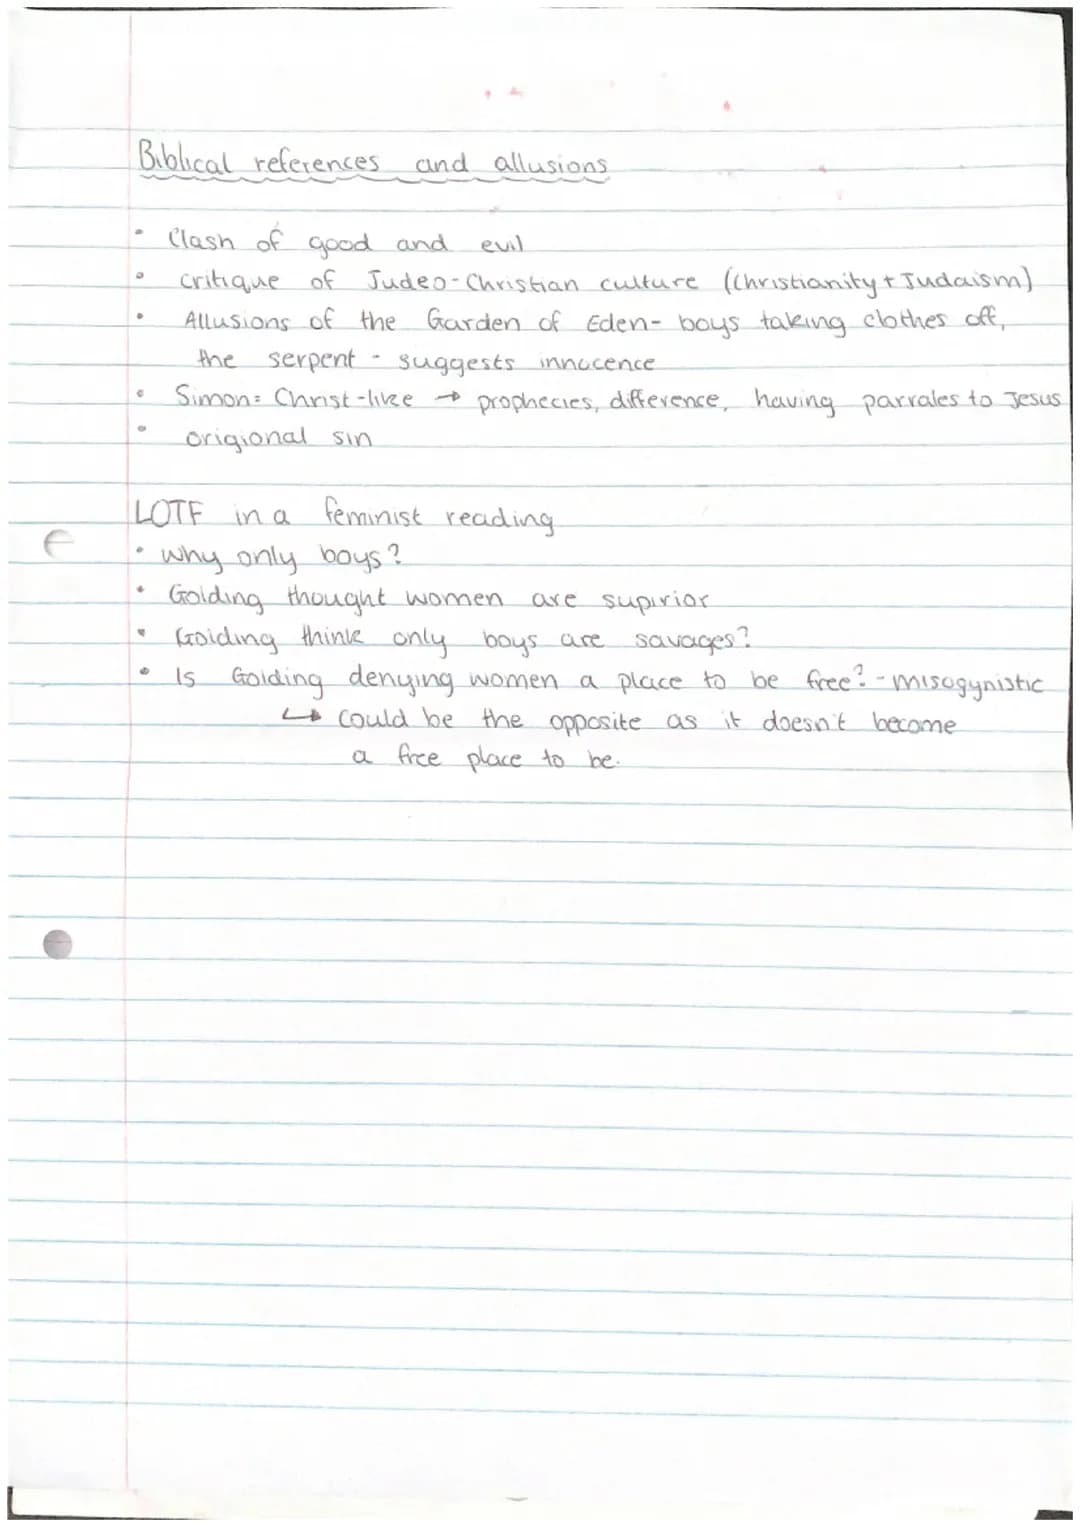 Biblical references and allusions
• Clash of good and evil
• critique of Judeo-Christian culture (Christianity + Judaism)
• Allusions of the Garden of Eden - boys taking clothes off,
the serpent - suggests innocence
• Simon = Christ-like → prophecies, difference, having parrales to Jesus
• origional sin
LOTF in a feminist reading
• why only boys?
• Golding thought women are supirior
• Golding think only boys are savages?
• Is Golding denying women a place to be free? - misogynistic
↳ could be the opposite as it doesn't become
a free place to be.